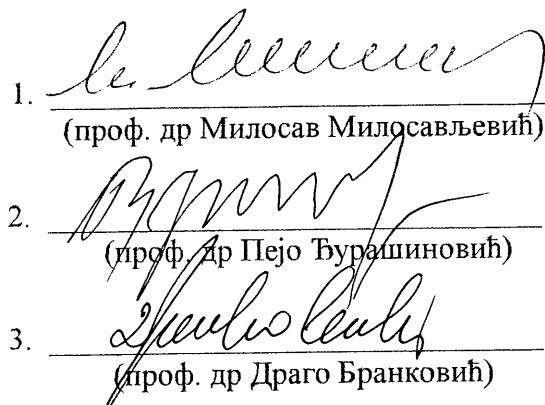 1.
(проф. др Милосав Милосављевић)
2.
(проф. др Пејо Ђурашиновић)
3.
(проф. др Драго Бранковић)